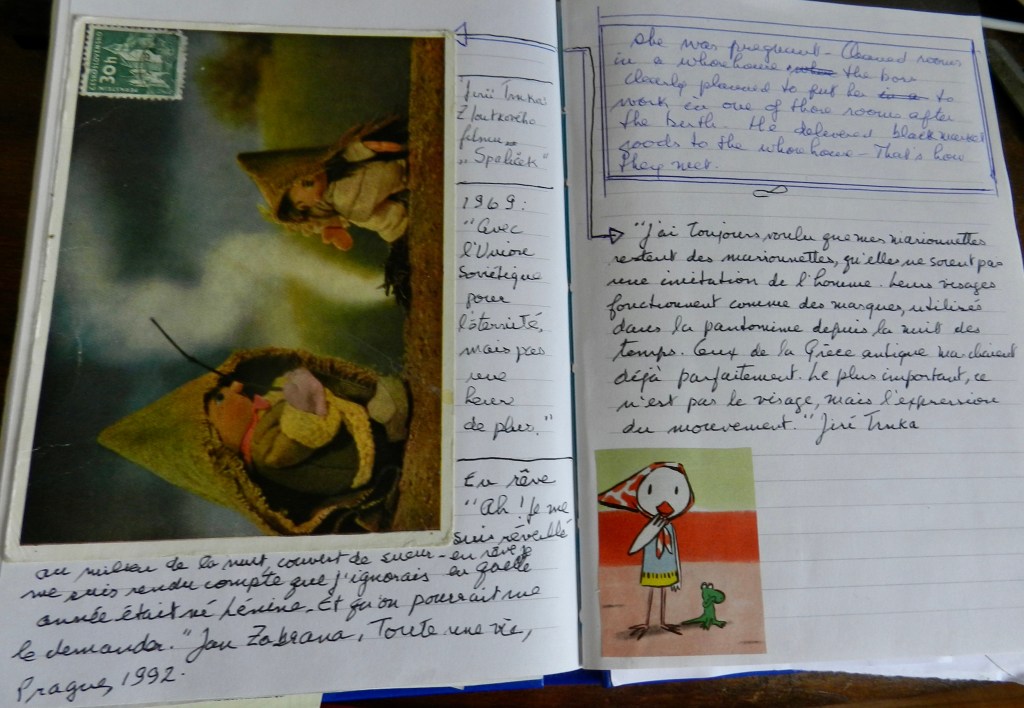 ČESKOSLOVENSKO
30h
Jiří Trnka
Z loutkového
filmu
"Špalíček"
1969:
"Avec
l'Union
soviétique
pour
l'éternité,
mais pas
une
heure
de plus."
En rêve
"Ah! Je me
suis réveillé
au milieu de la nuit, couvert de sueur - en rêve je
me suis rendu compte que j'ignorais en quelle
année était né Lénine. Et qu'on pourrait me
le demander." Jan Zabrana, Toute une vie,
Prague, 1992.
she was pregnant - Cleaned rooms
in a whorehouse the boss
clearly planned to put her in a to
work in one of those rooms after
the birth. He delivered black market
goods to the whorehouse - That's how
they met.
"J'ai toujours voulu que mes marionnettes
restent des marionnettes, qu'elles ne soient pas
une imitation de l'homme. Leurs visages
fonctionnent comme des masques, utilisés
dans la pantomime depuis la nuit des
temps. Ceux de la Grèce antique marchaient
déjà parfaitement. Le plus important, ce
n'est pas le visage, mais l'expression
du mouvement." Jiří Trnka